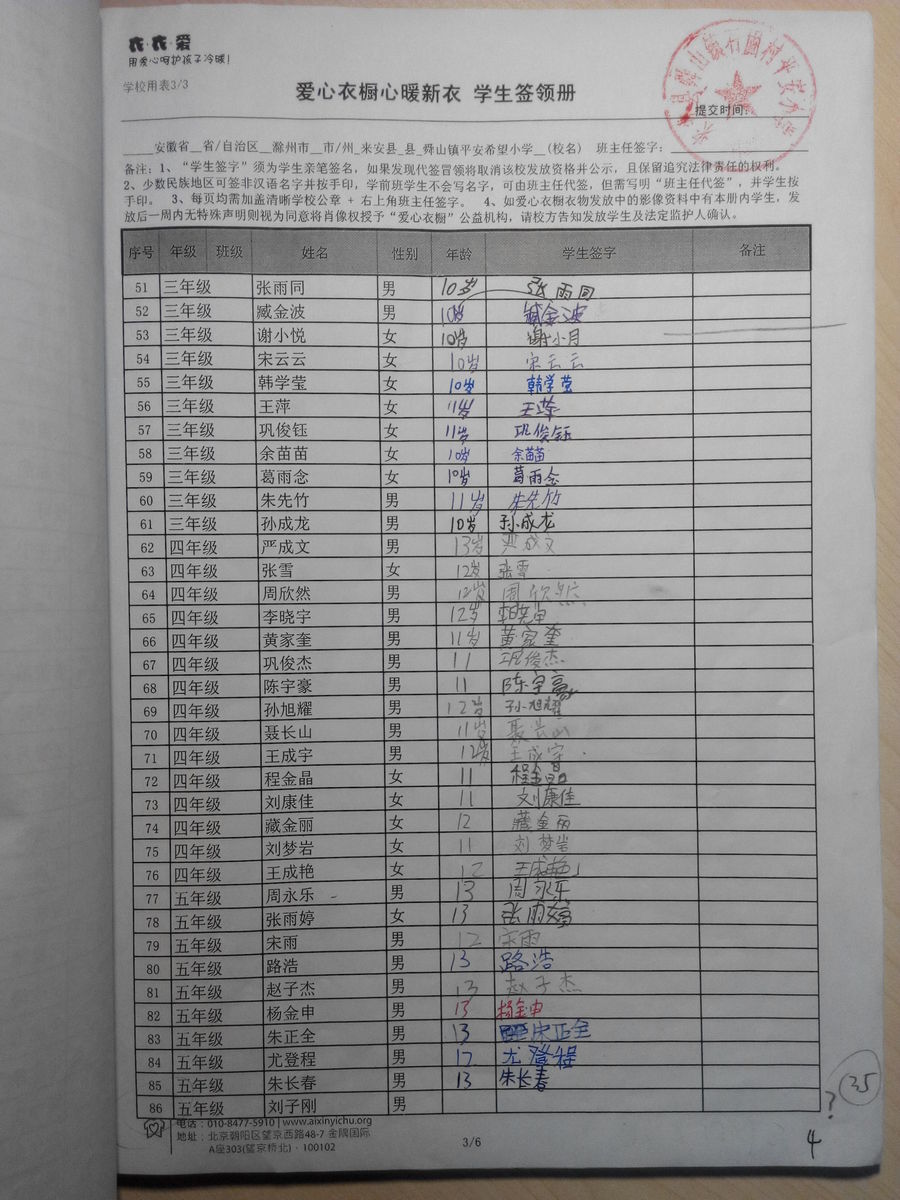 衣·衣·爱
用爱心呵护孩子冷暖!
学校用表3/3
爱心衣橱心暖新衣 学生签领册
提交时间:
____安徽省__省/自治区__滁州市__市/州_来安县_县_舜山镇平安希望小学__(校名) 班主任签字:
备注: 1、“学生签字”须为学生亲笔签名, 如果发现代签冒领将取消该校发放资格并公示, 且保留追究法律责任的权利。
2、少数民族地区可签非汉语名字并按手印, 学前班学生不会写名字, 可由班主任代签, 但需写明“班主任代签”, 并学生按
手印。 3、每页均需加盖清晰学校公章 + 右上角班主任签字。 4、如爱心衣橱衣物发放中的影像资料中有本册内学生, 发
放后一周内无特殊声明则视为同意将肖像权授予“爱心衣橱”公益机构, 请校方告知发放学生及法定监护人确认。
序号 年级 班级 姓名 性别 年龄 学生签字 备注
51 三年级 张雨同 男 10岁 张雨同
52 三年级 臧金波 男 10岁 臧金波
53 三年级 谢小悦 女 10岁 谢小月
54 三年级 宋云云 女 10岁 宋云云
55 三年级 韩学莹 女 10岁 韩学莹
56 三年级 王萍 女 11岁 王萍
57 三年级 巩俊钰 女 11岁 巩俊钰
58 三年级 余苗苗 女 10岁 余苗苗
59 三年级 葛雨念 女 10岁 葛雨念
60 三年级 朱先竹 男 11岁 朱先竹
61 三年级 孙成龙 男 10岁 孙成龙
62 四年级 严成文 男 13岁 严成文
63 四年级 张雪 女 12岁 张雪
64 四年级 周欣然 男 12岁 周欣然
65 四年级 李晓宇 男 12岁
66 四年级 黄家奎 男 11岁 黄家奎
67 四年级 巩俊杰 男 11 巩俊杰
68 四年级 陈宇豪 男 11 陈宇豪
69 四年级 孙旭耀 男 12岁 孙旭耀
70 四年级 聂长山 男 11岁
71 四年级 王成宇 男 12岁 王成宇
72 四年级 程金晶 女 11 程金晶
73 四年级 刘康佳 女 11 刘康佳
74 四年级 藏金丽 女 12 藏金丽
75 四年级 刘梦岩 女 11 刘梦岩
76 四年级 王成艳 女 12 王成艳
77 五年级 周永乐 男 13 周永乐
78 五年级 张雨婷 女 13 张雨婷
79 五年级 宋雨 男 12 宋雨
80 五年级 路浩 男 13 路浩
81 五年级 赵子杰 男 13 赵子杰
82 五年级 杨金申 男 13 杨金申
83 五年级 朱正全 男 13 朱正全
84 五年级 尤登程 男 12 尤登程
85 五年级 朱长春 男 13 朱长春
86 五年级 刘子刚 男
? 35
电话: 010-8477-5910 | www.aixinyichu.org
地址: 北京朝阳区望京西路48-7 金隅国际
A座303(望京桥北) · 100102
3/6
4